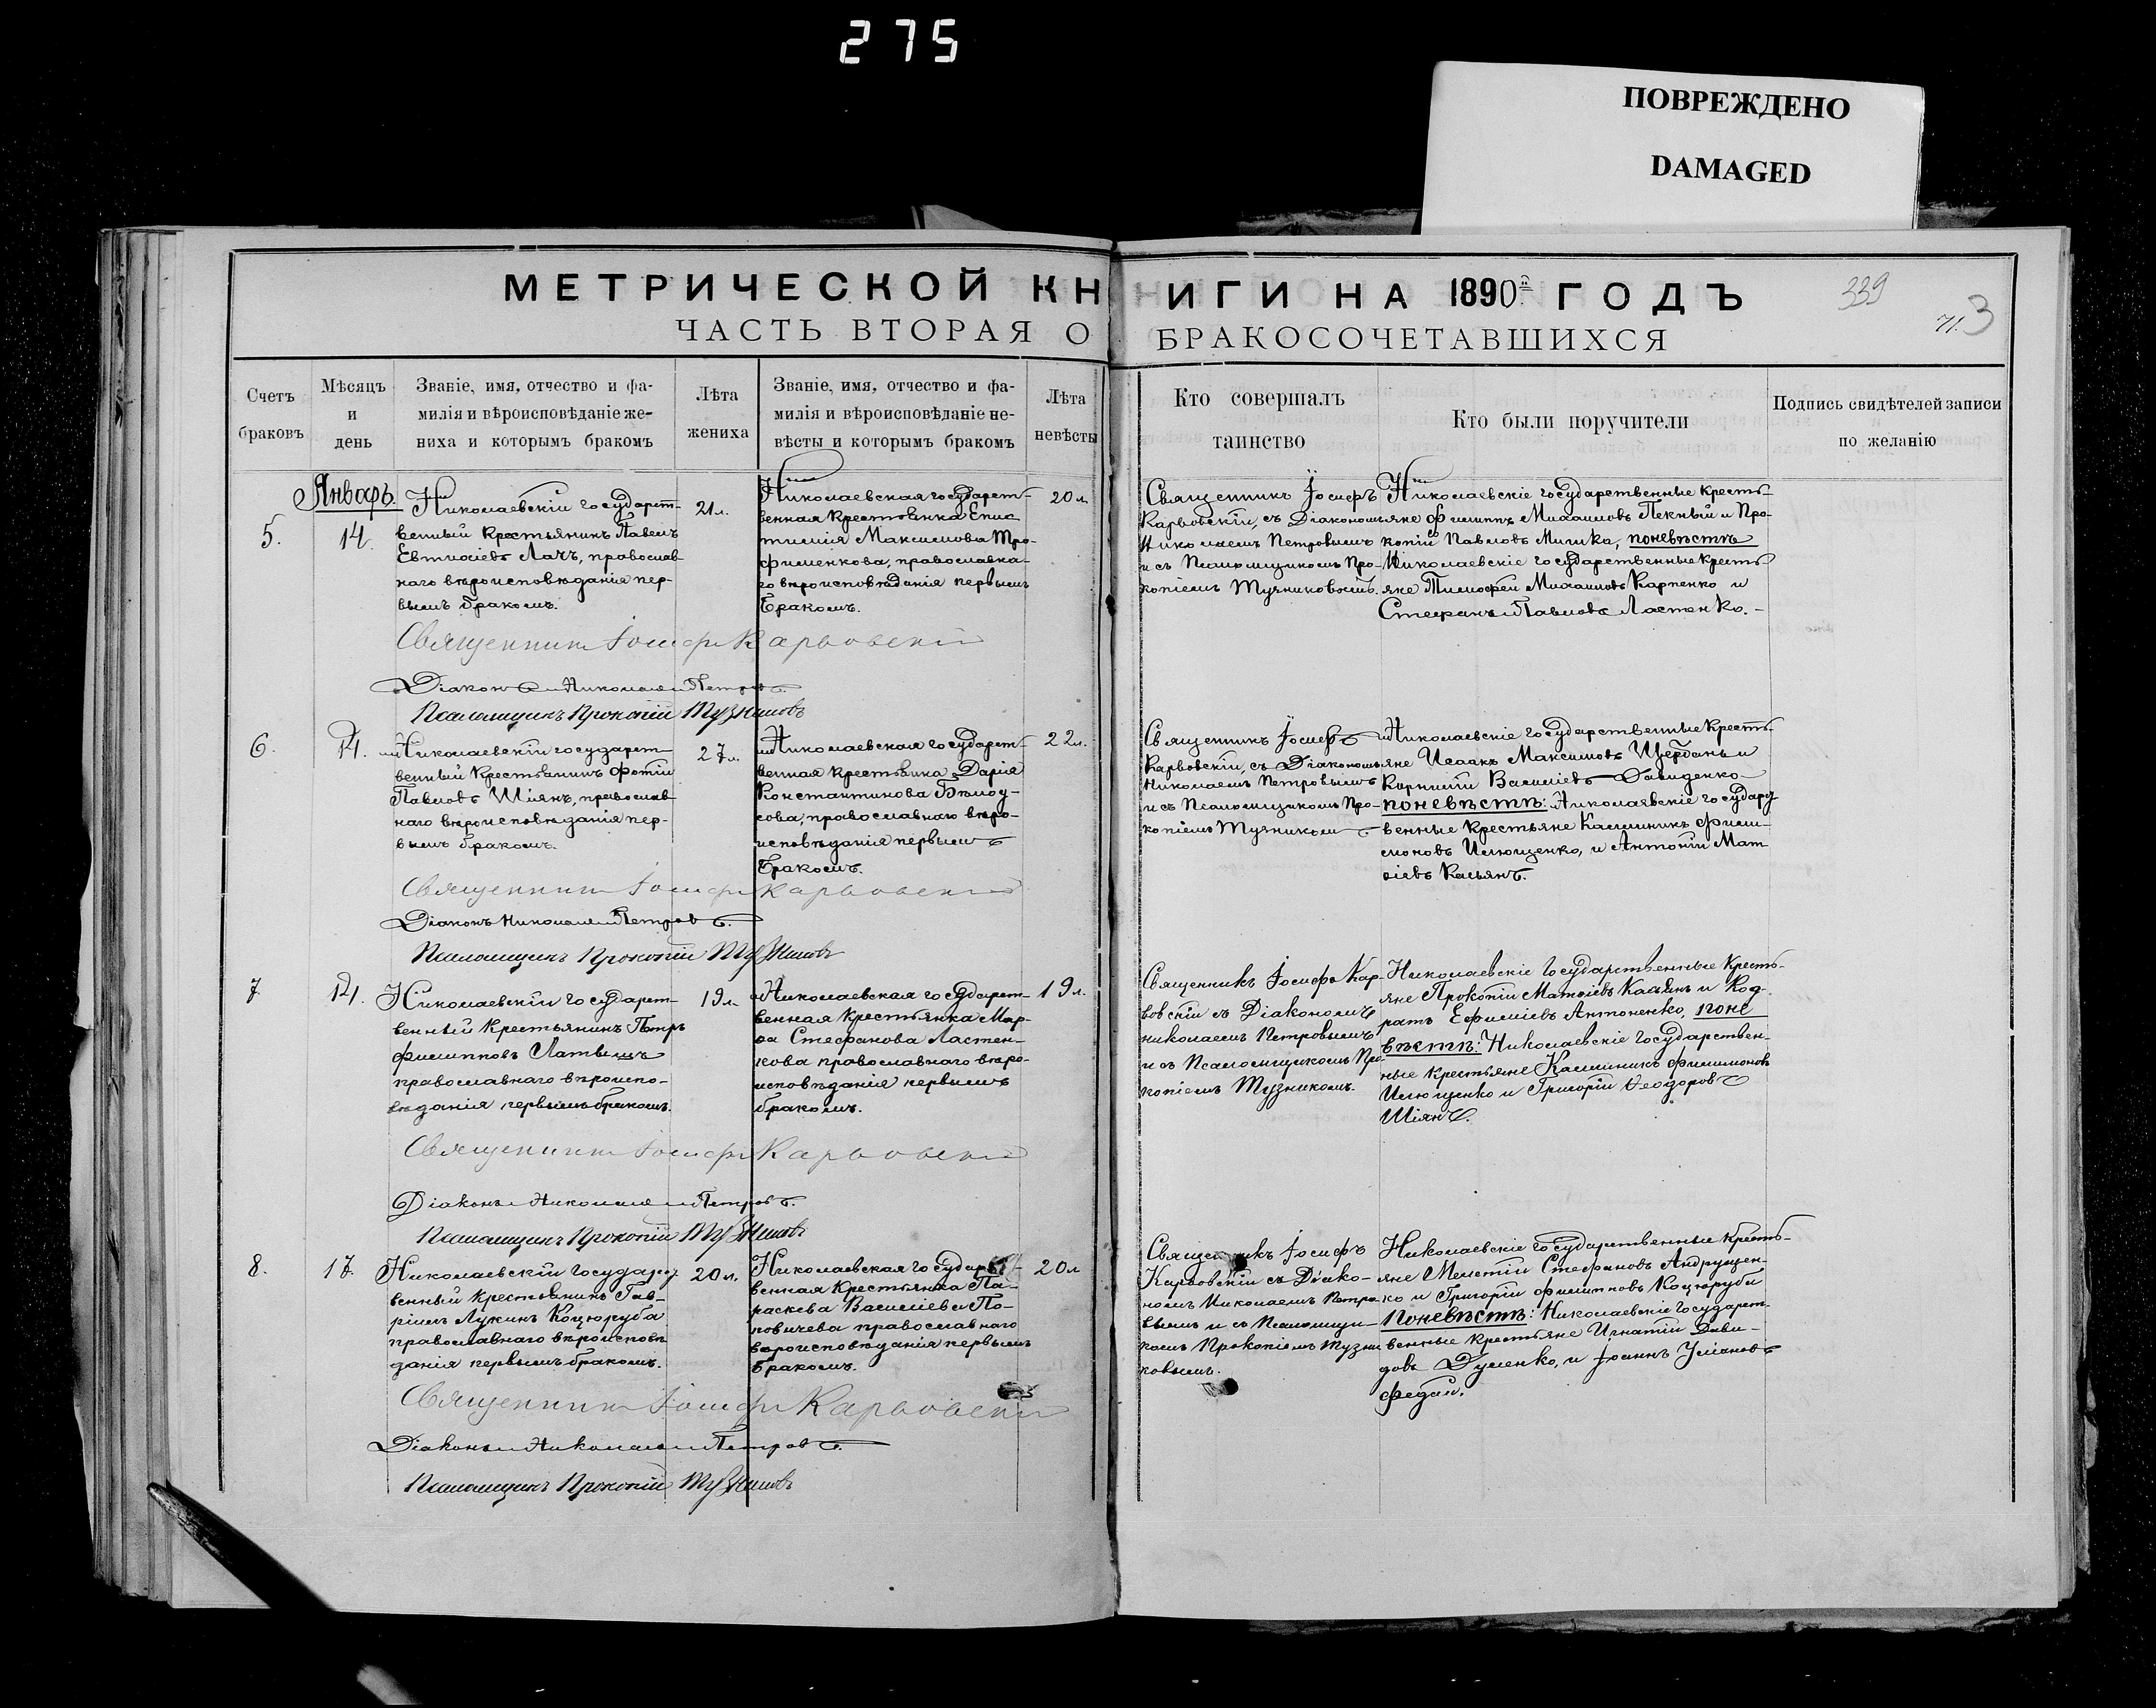 275
ПОВРЕЖДЕНО
DAMAGED
МЕТРИЧЕСКОЙ КНИГИ НА 1890й ГОДЪ
339
ЧАСТЬ ВТОРАЯ О БРАКОСОЧЕТАВШИХСЯ
Счетъ
браковъ
Мѣсяцъ
и
день
Званіе, имя, отчество и фа-
милія и вѣроисповѣданіе же-
ниха и которымъ бракомъ
Лѣта
жениха
Званіе, имя, отчество и фа-
милія и вѣроисповѣданіе не-
вѣсты и которымъ бракомъ
Лѣта
невѣсты
Кто совершалъ
таинство
Кто были поручители
Подпись свидѣтелей записи
по желанію
Январь
5.
14.
Николаевскій государст-
венный крестьянинъ Павелъ
Евтихіевъ Лачъ, православ-
наго вѣроисповѣданія пер-
вымъ бракомъ.
21 л.
Николаевская государст-
венная крестьянка Епис
тимія Максимова Тро-
фименкова, православна-
го вѣроисповѣданія первымъ
бракомъ.
20 л.
Священникъ Іосифъ
Карвовскій, съ Діакономъ
Николаемъ Петровымъ
и съ Псаломщикомъ Про-
копіемъ
Николаевскіе государственные кресть-
яне Филиппъ Михаиловъ Пекный и Про-
копій Павловъ Мишка, по невѣстѣ
Николаевскіе государственные кресть-
яне Тимофей Михаиловъ Карпенко и
Стефанъ Павловъ Ластенко.
Священникъ Іосифъ Карвовскій
Діаконъ Николай Петровъ.
Псаломщикъ Прокопій
6.
14.
Николаевскій государст-
венный крестьянинъ Фотій
Павловъ Шіянъ, православ-
наго вѣроисповѣданія пер-
вымъ бракомъ.
27 л.
Николаевская государст-
венная крестьянка Дарія
Константинова Бѣлоу-
сова, православнаго вѣро-
исповѣданія первымъ
бракомъ.
22 л.
Священникъ Іосифъ
Карвовскій, съ Діакономъ
Николаемъ Петровымъ
и съ Псаломщикомъ Про-
копіемъ
Николаевскіе государственные кресть-
яне Исаакъ Максимовъ Щербань и
Корнилій Василіевъ Давиденко
по невѣстѣ: Николаевскіе государст
венные крестьяне Каллиникъ Фили-
моновъ Илющенко, и Антоній Мат
ѳіевъ Касьянъ.
Священникъ Іосифъ Карвовскій
Діаконъ Николай Петровъ.
Псаломщикъ Прокопій
7.
14.
Николаевскій государст-
венный крестьянинъ Петръ
Филипповъ Латышъ
православнаго вѣроиспо-
вѣданія первымъ бракомъ.
19 л.
Николаевская государст-
венная крестьянка Мар-
ѳа Стефанова Ластен-
кова православнаго вѣро-
исповѣданія первымъ
бракомъ.
19 л.
Священникъ Іосифъ Кар-
вовскій съ Діакономъ
Николаемъ Петровымъ
и съ Псаломщикомъ Про-
копіемъ
Николаевскіе государственные кресть-
яне Прокопій Матѳіевъ Касьянъ и Код-
ратъ Ефиміевъ Антоненко, по не
вѣстѣ: Николаевскіе государствен-
ные крестьяне Каллиникъ Филимоновъ
Илющенко и Григорій Ѳеодоровъ
Шіянъ.
Священникъ Іосифъ Карвовскій
Діаконъ Николай Петровъ.
Псаломщикъ Прокопій
8.
17.
Николаевскій государст
венный крестьянинъ Гав-
ріилъ Лукинъ Коцюруба
православнаго вѣроисповѣ
данія первымъ бракомъ.
20 л.
Николаевская государст-
венная крестьянка Па-
раскева Василіева По-
повичева православнаго
вѣроисповѣданія первымъ
бракомъ.
20 л
Священникъ Іосифъ
Карвовскій съ Діако-
номъ Николаемъ Петро
вымъ и съ Псаломщи-
комъ Прокопіемъ Тузни
ковымъ.
Николаевскіе государственные кресть-
яне Мелетій Стефановъ Андрущен-
ко и Григорій Филипповъ Коцюруба
По невѣстѣ: Николаевскіе государст-
венные крестьяне Игнатій Дави-
довъ Думенко, и Іоаннъ Уліановъ
Федай.
Священникъ Іосифъ Карвовскій
Діаконъ Николай Петровъ.
Псаломщикъ Прокопій